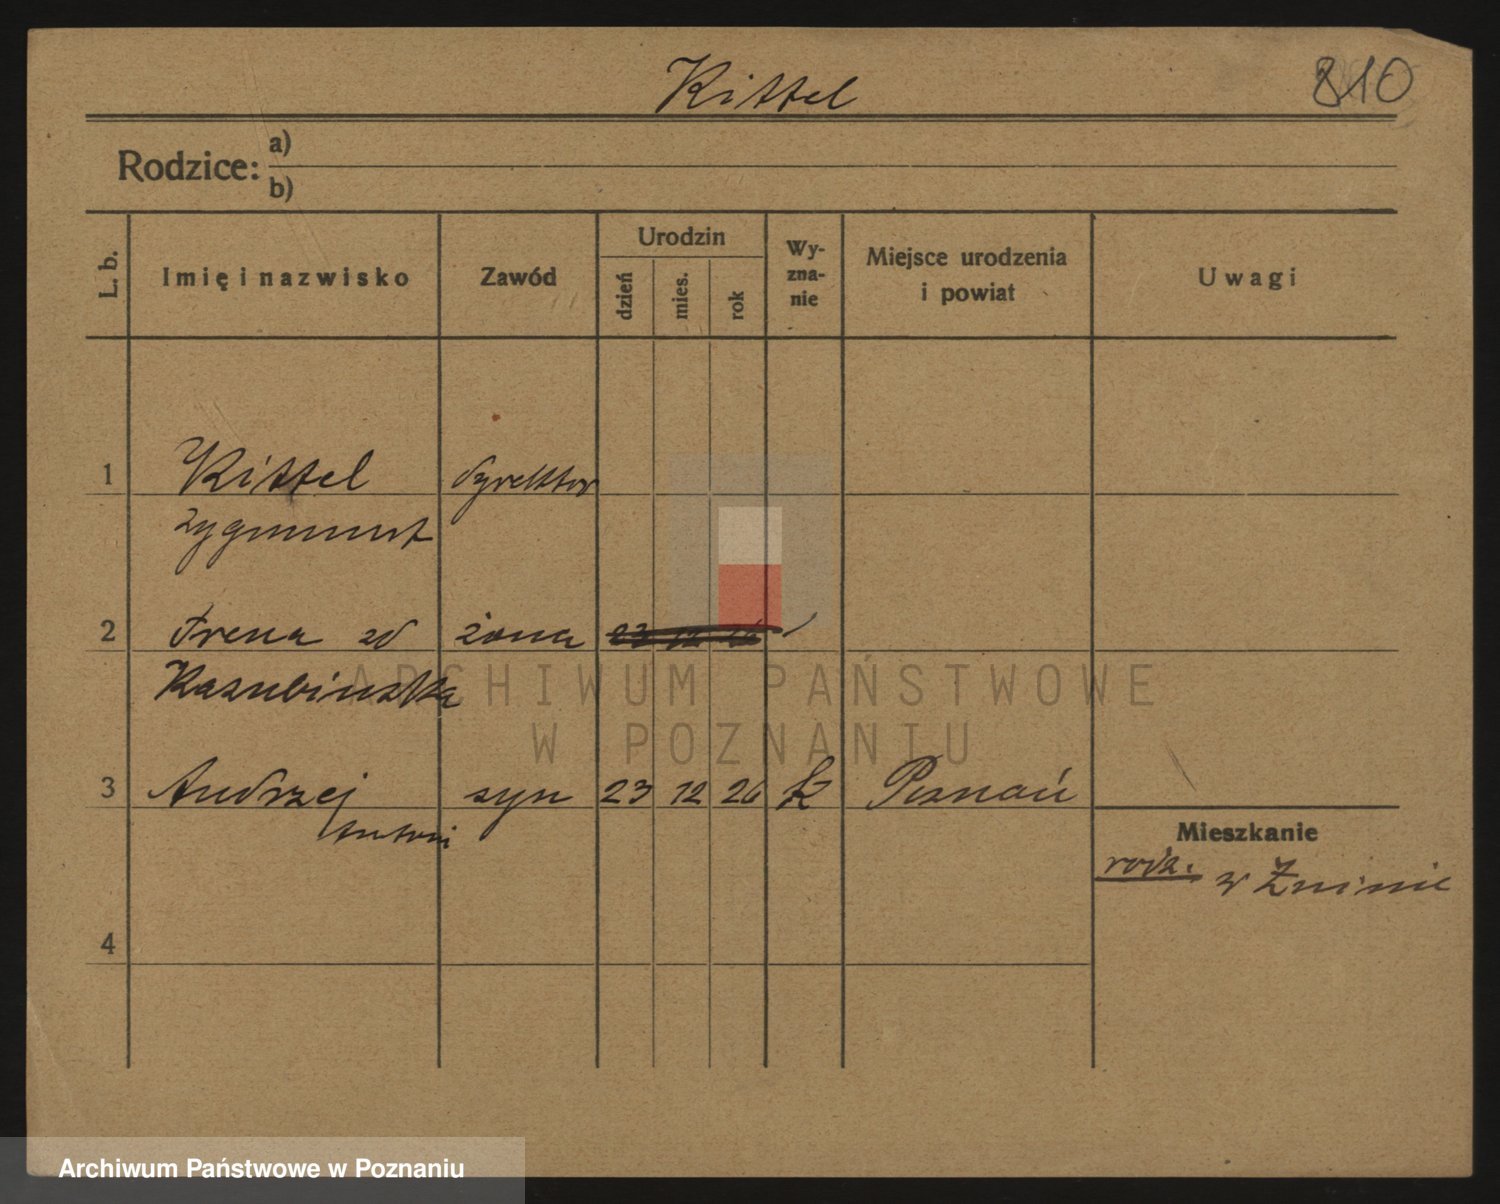 Kittel
810
Rodzice: a)
b)
L. b.
Imię i nazwisko
Zawód
Urodzin
dzień
mies.
rok
Wy-
zna-
nie
Miejsce urodzenia
i powiat
Uwagi
1 Kittel dyrektor
Zygmunt
2 Irena zd żona 23 12 26
Kaznbińska
3 Andrzej syn 23 12 26 k Poznań
Antoni
Mieszkanie
rodz. w Żninie
4
ARCHIWUM PAŃSTWOWE
W POZNANIU
Archiwum Państwowe w Poznaniu